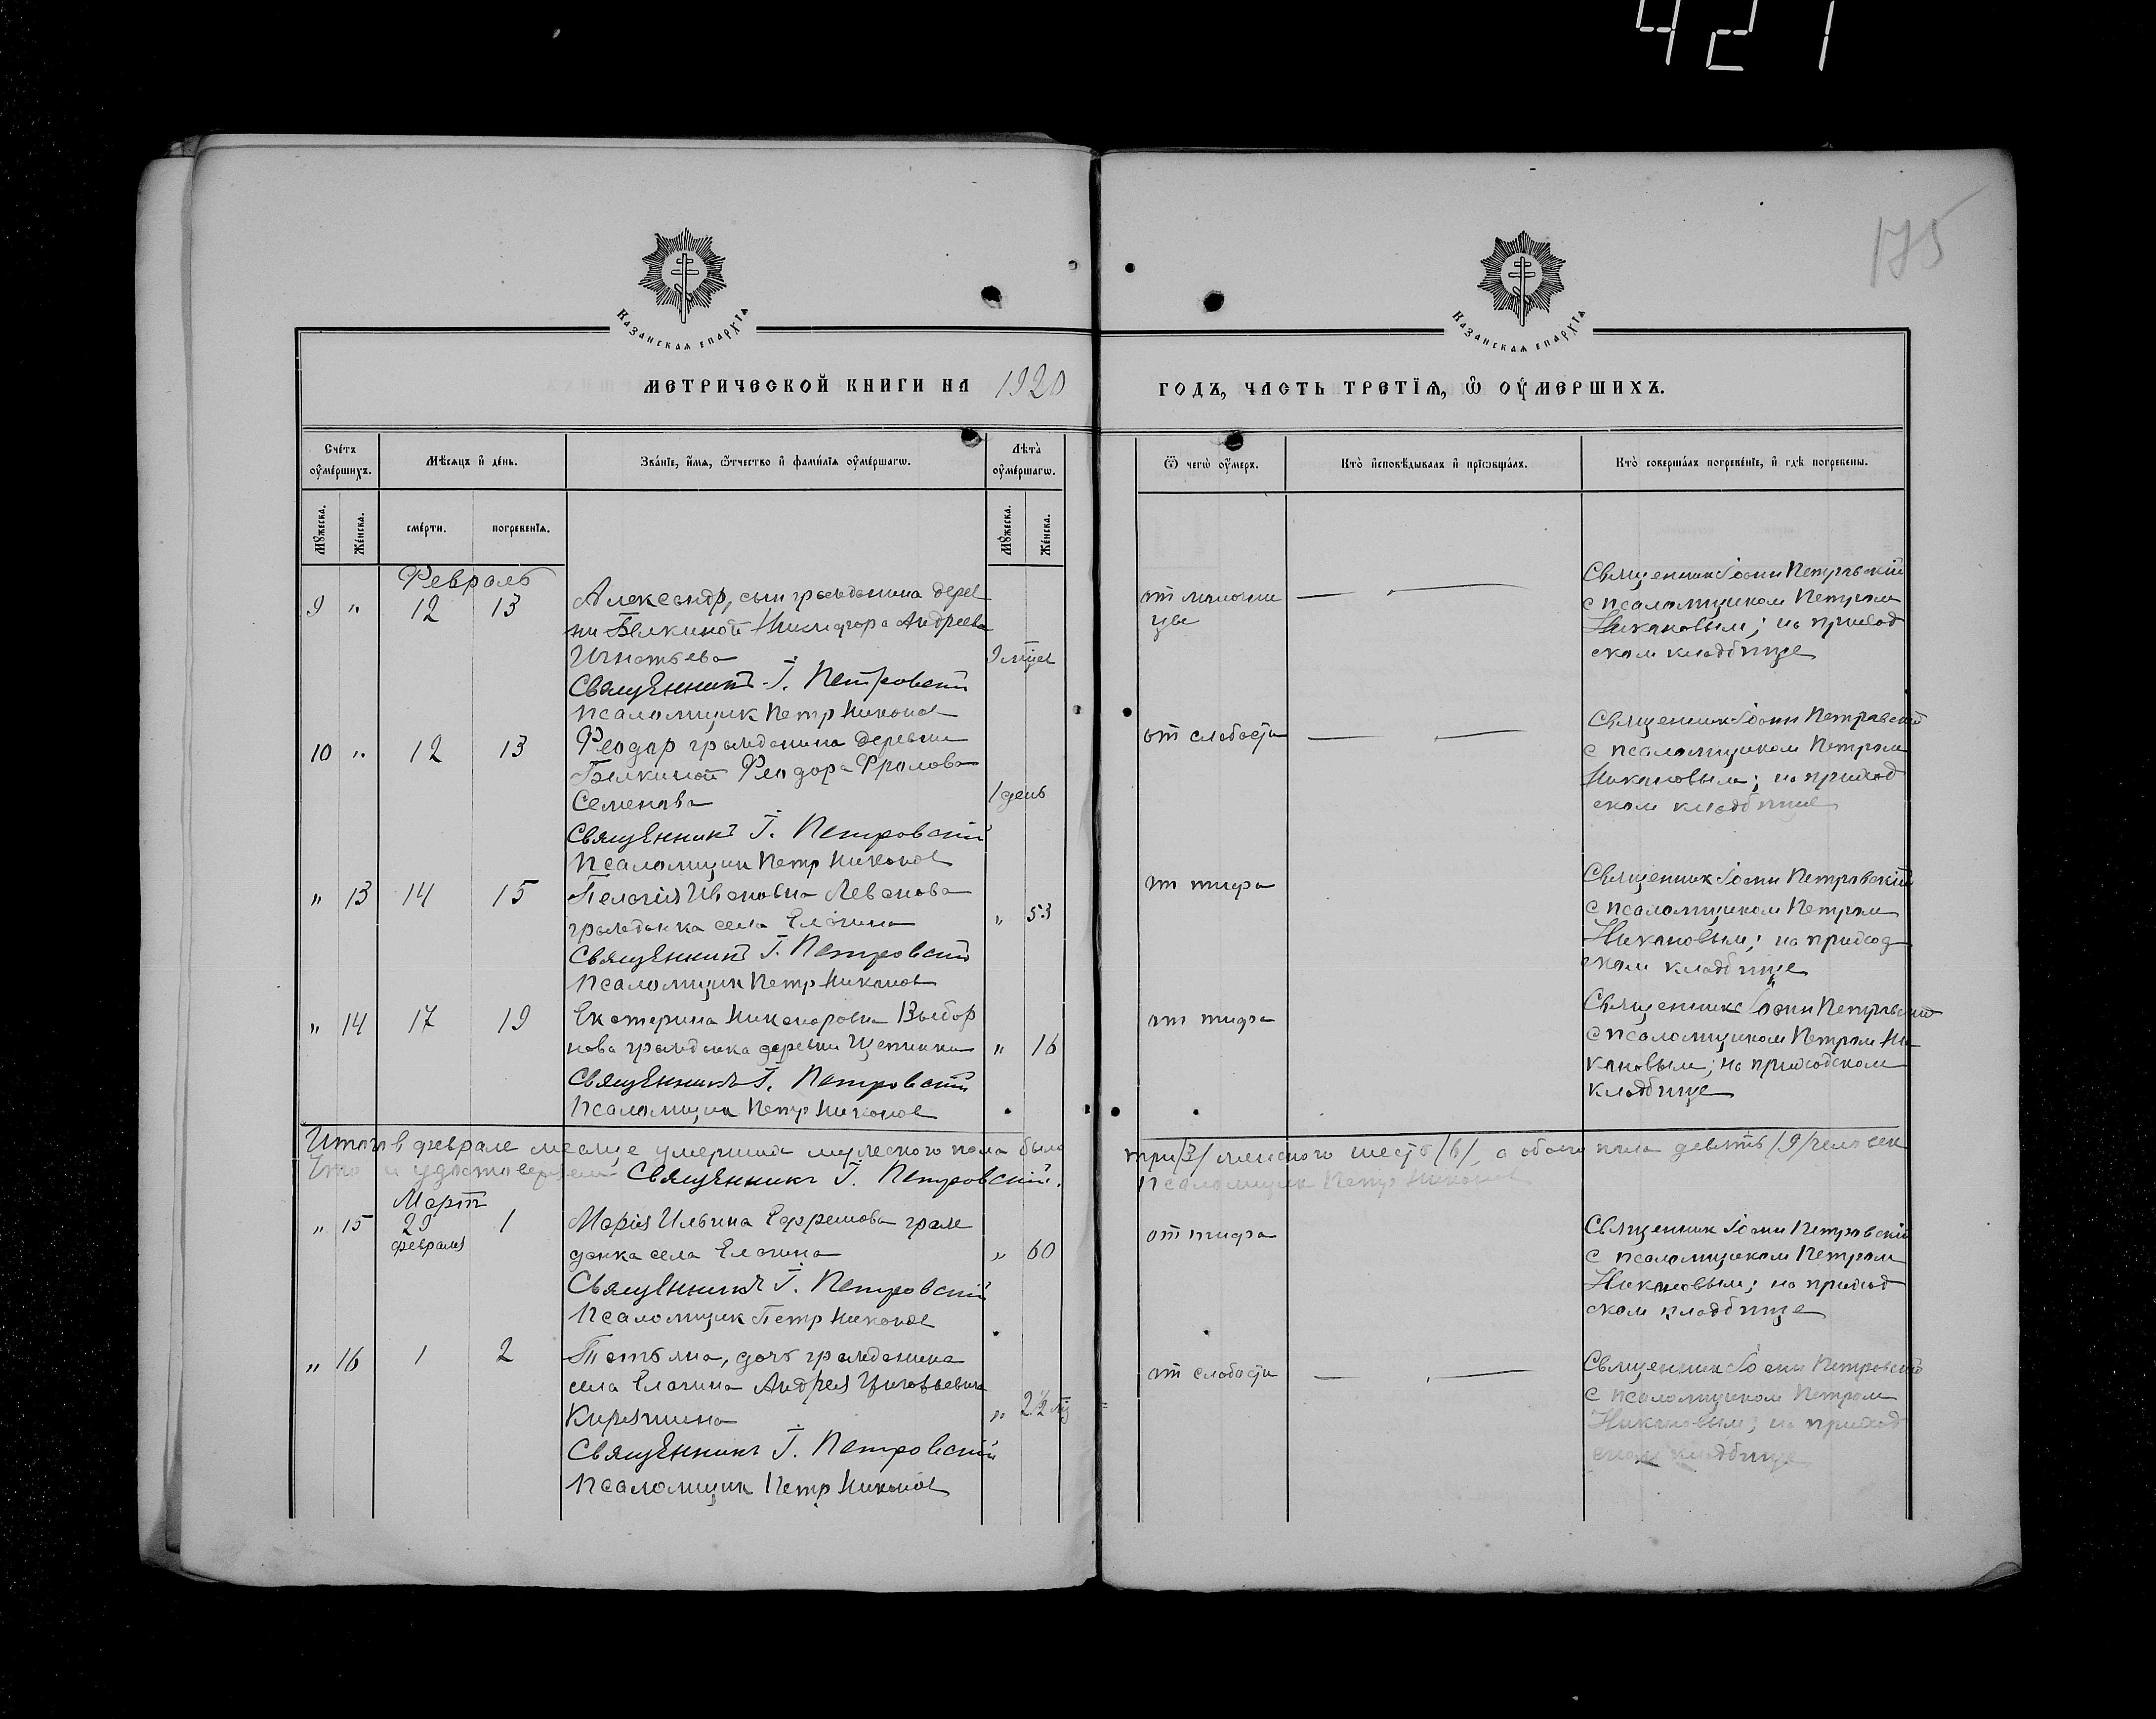 421
175
Казанская епархїѧ
Казанская епархїѧ
Метрической книги на 1920
годъ, часть третїѧ, ѡ оумершихъ.
Счетъ оумершихъ.
Мѣсяцъ и день.
Званїе, имя, ѡтчество и фамилїя оумершагѡ.
Лѣта оумершагѡ.
Ѿ чегѡ оумеръ.
Кто исповѣдывалъ и прїѡбщалъ.
Кто совершалъ погребенїе, и гдѣ погребены.
Мужеска.
Женска.
смерти.
погребенїя.
Мужеска.
Женска.
Февраль
9 " 12 13
Александр, сын гражданина дерев
ни Белкиной Никифора Андреева
Игнатьева
9 мцев
Священникъ І. Петровскій
Псаломщик Петр Никонов
от молочни
цы
Священник Іоанн Петровскій
с псаломщиком Петром
Никоновым; на приход
ском кладбище
10 " 12 13
Феодор гражданина деревни
Белкиной Феодора Фролова
Семенова
1 день
Священникъ І. Петровскій
Псаломщик Петр Никонов
от слабости
Священник Іоанн Петровскій
с псаломщиком Петром
Никоновым; на приход
ском кладбище
" 13 14 15
Пелагія Ивановна Леванова
гражданка села Елагина
" 53
Священникъ І. Петровскій
Псаломщик Петр Никонов
от тифа
Священник Іоанн Петровскій
с псаломщиком Петром
Никоновым; на приход
ском кладбище
" 14 17 19
Екатерина Никаноровна Выбор
нова гражданка деревни
" 16
Священникъ І. Петровскій
Псаломщик Петр Никонов
от тифа
Священник Іоанн Петровскій
с псаломщиком Петром Ни
коновым; на приходском
кладбище
Итого в феврале месяце умерших мужеского пола было три /3/ женского шесть /6/, а обоего пола девять /9/ человек
Что и удостоверяем Священникъ І. Петровскій. Псаломщик Петр Никонов
Март
" 15 29 1
февраля
Марія Ильина Ефремова граж
данка села Елагина
" 60
Священникъ І. Петровскій
Псаломщик Петр Никонов
от тифа
Священник Іоанн Петровскій
с псаломщиком Петром
Никоновым; на приход
ском кладбище
" 16 1 2
Татьяна, дочь гражданина
села Елагина Андрея
Кирягина
" 2½ мц
Священникъ І. Петровскій
Псаломщик Петр Никонов
от слабости
Священник Іоанн Петровскій
с псаломщиком Петром
Никоновым; на приход
ском кладбище